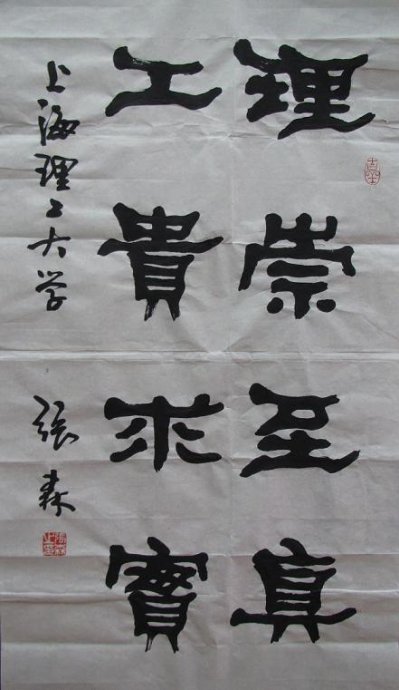 理崇至真
工貴求實
上海理工大学
張森